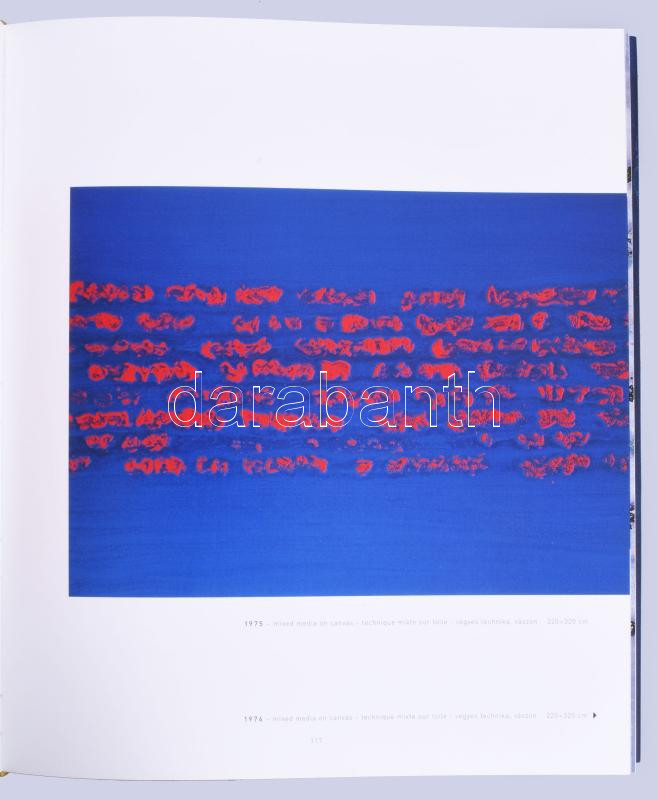 darabanth
1975 – mixed media on canvas – technique mixte sur toile – vegyes technika, vászon 220×320 cm
1974 – mixed media on canvas – technique mixte sur toile – vegyes technika, vászon 220×320 cm
117